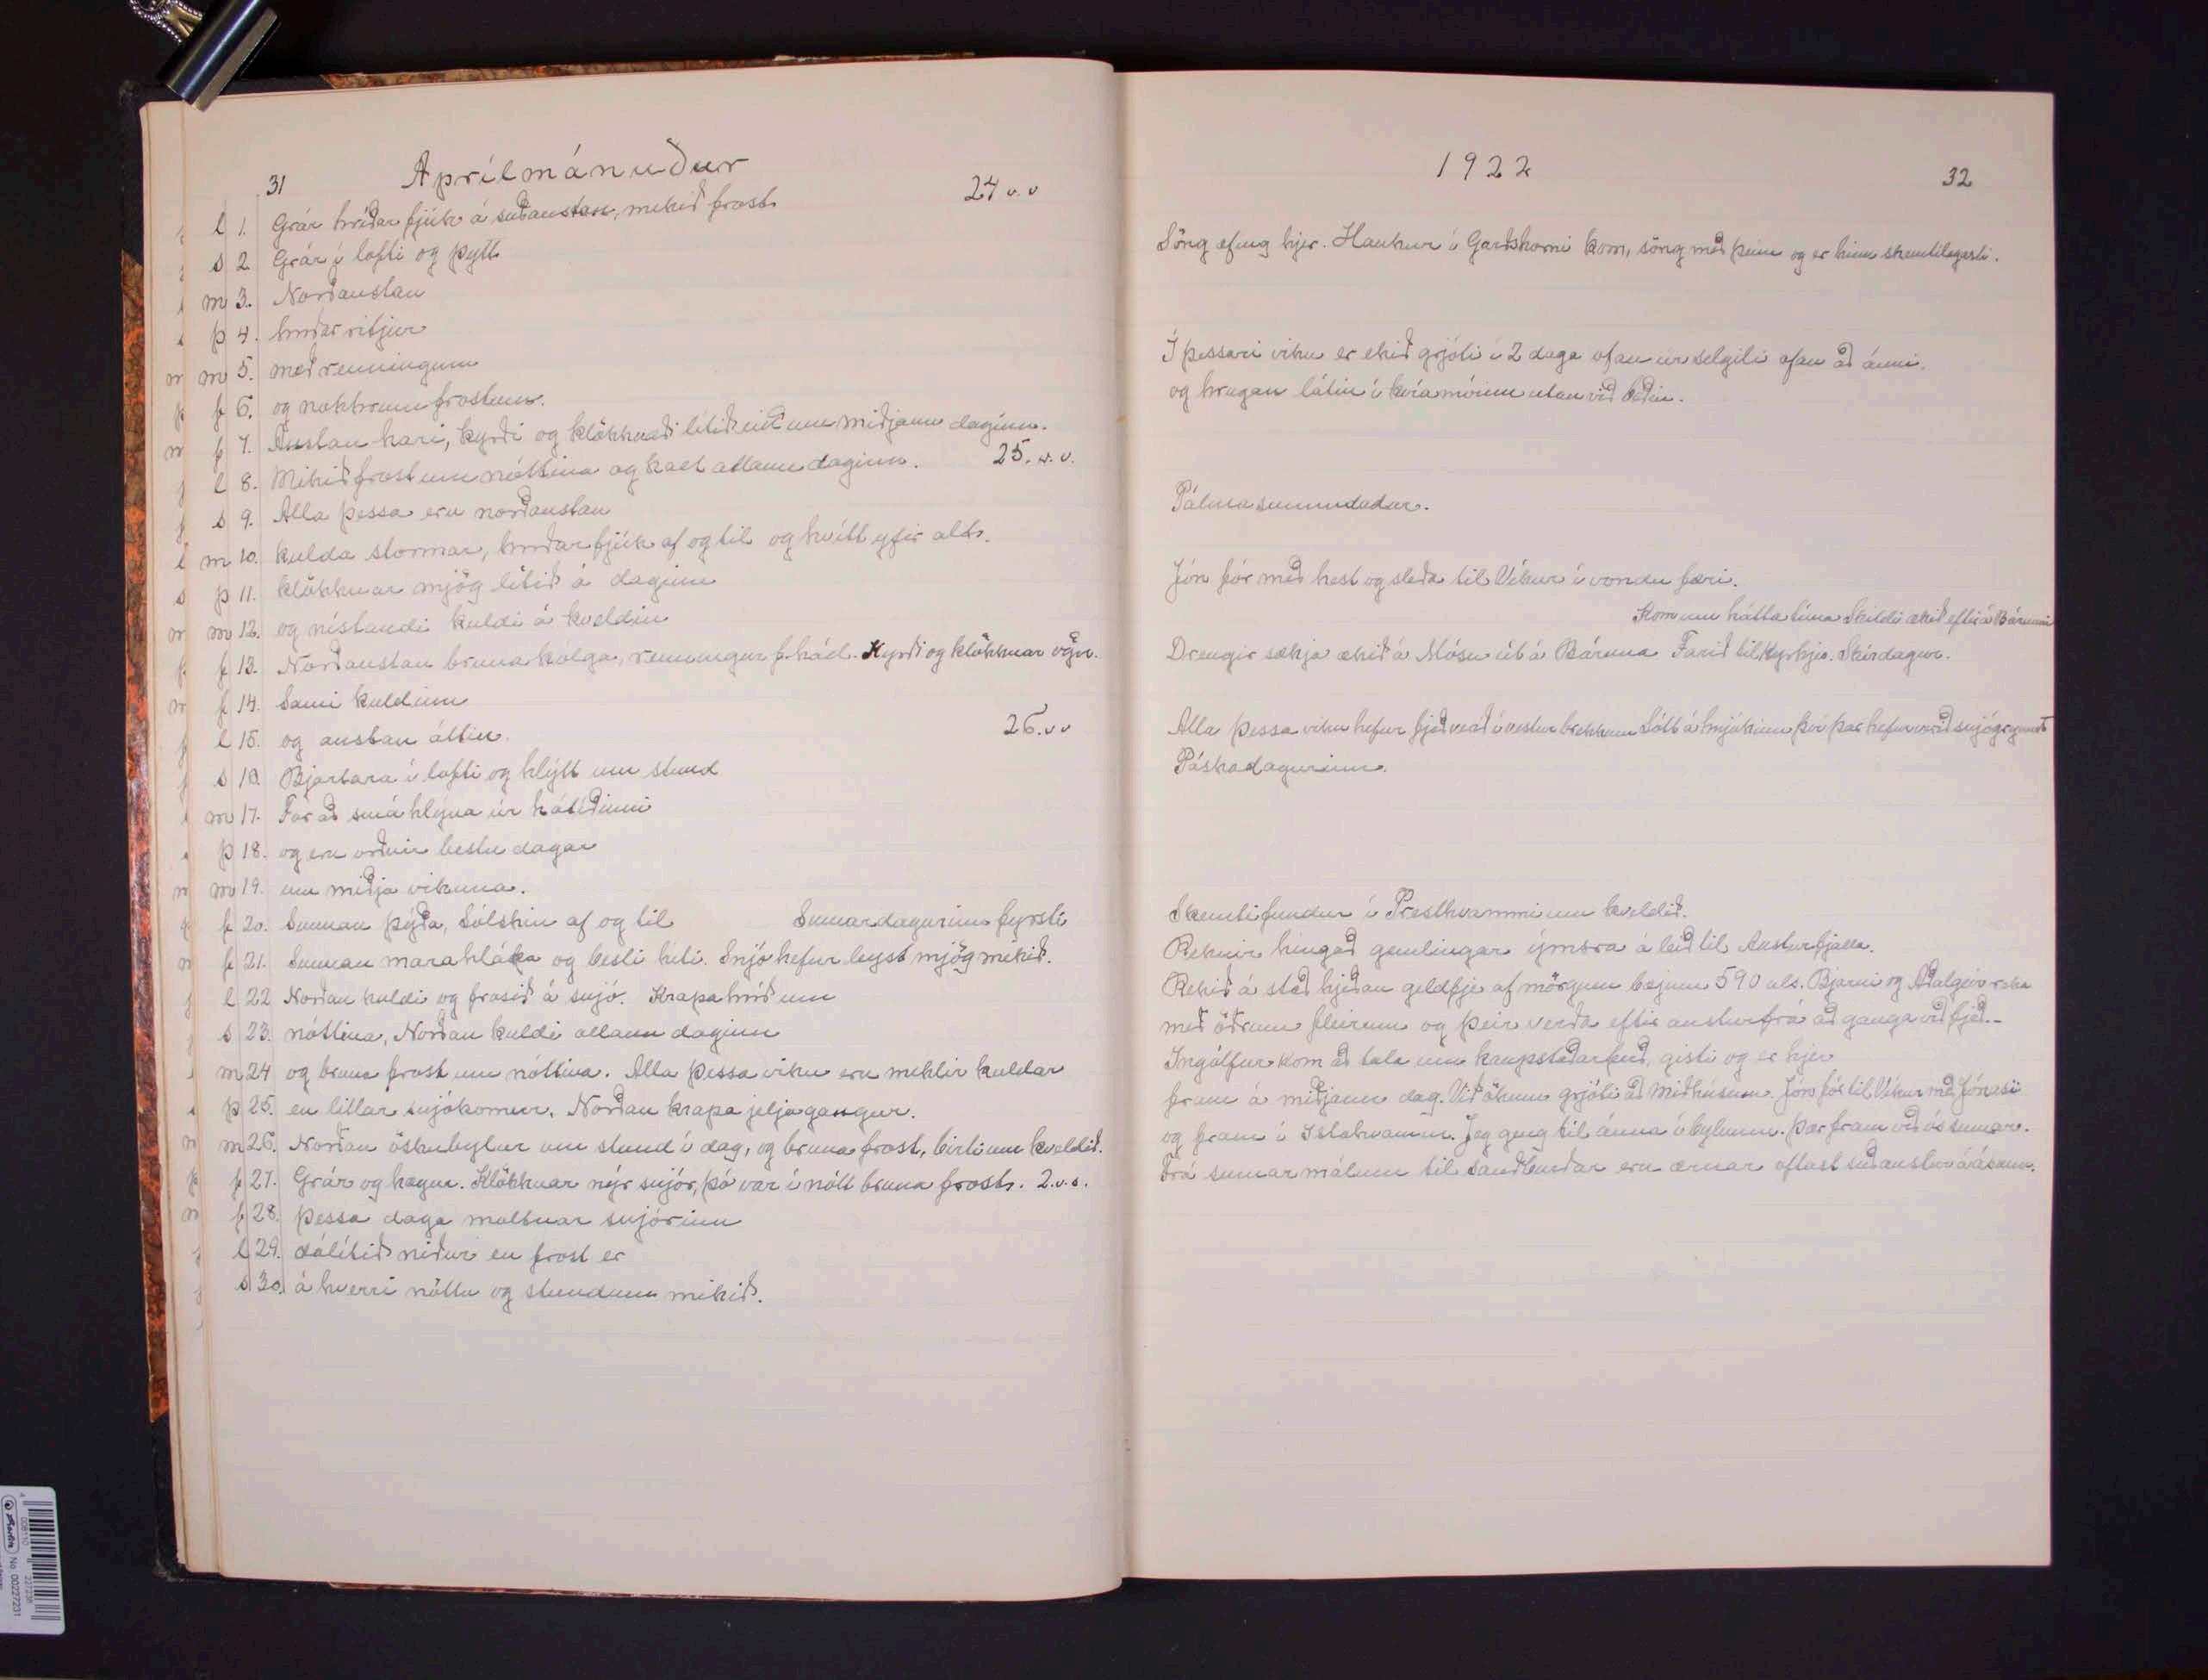 31 Aprílmánuður
24 v.v
l 1. Grár hríðar fjúk á suðaustan, mikið frost.
s 2 Grár í lofti og þytt
m 3. Norðaustan
þ 4. hríðar vitjur
m 5. með renningum
f 6. og nokkrum frostum.
f 7. Austan kari, kyrði og klökknaði lítið eitt um miðjann daginn.
l 8. Mikið frost um nóttina og kalt allann daginn. 25. v.v.
s 9. Alla þessa eru norðaustan
m 10. kulda stormar, hríðar fjúk af og til og hvítt yfir alt.
þ 11. klökknar mjög lítið á daginn
m 12. og nístandi kuldi á kveldin
f 13. Norðaustan bruna kólga, renningur f. hád. Kyrði og klökknar ögn.
f 14. Sami kuldinn
l 15. og austan áttin. 26. v v
s 16. Bjartara í lofti og hlýtt um stund
m 17. Fór að smá hlýna úr hátíðinni
þ 18. og eru orðnir bestu dagar
m 19. um miðja vikuna.
f 20. Sunnan þýða, Sólskin af og til Sumardagurinn fyrsti
f 21. Sunnan marahláka og besti hiti. Snjó hefur leyst mjög mikið.
l 22 Norðan kuldi og frosið á snjó. Krapahríð um
s 23. nóttina, Norðan kuldi allann daginn
m 24 og bruna frost um nóttina. Alla þessa viku eru miklir kuldar
þ 25. en litlar snjókomur. Norðan krapa jeljagangur.
m 26. Norðan öskubylur um stund í dag, og bruna frost, birti um kveldið.
f 27. Grár og hægur. Klökknar nýr snjór, þó var í nótt bruna frost. 2. v. s.
f 28. þessa daga moltnar snjórinn
l 29. dálítið niður en frost er
s 30. á hverri nóttu og stundum mikið.
1922
32
Söng æfing hjer. Haukur í Garðshorni kom, söng með þeim og er hinn skemtilegasti.
Í þessari viku er ekið grjóti í 2 daga ofan úr selgili ofan að ánni.
og hrugan látin í kvíamóinn utan við
Pálmasunnudadur.
Jón fór með hest og sleða til Víkur í vondu færi.
Kom um hátta tíma Skildi ækið eftir á Bárunni
Drengir sækja ækið á Mósu út á Báruna Farið til Kyrkju. Skírdagur.
Alla þessa viku hefur fjeð verið í vestur brekkum Sótt á hnjúkinn því þar hefur verið snjógrynnst
Páskadagurinn.
Skemtifundur í Presthvammi um kveldið.
Reknir hingað gemlingar ýmsra á leið til Austurfjalla.
Rekið á stað hjeðan geldfje af mörgum bæjum 590 als. Bjarni og Aðalgeir reka
með öðrum fleirum og þeir verða eftir austurfrá að ganga við fjeð.-
Ingólfur kom að tala um kaupstaðarferð, gisti og er hjer
fram á miðjann dag. Við ökum grjóti að Miðhúsum. Jón fór til Víkur með Jónasi
og fram í Jeg geng til ánna í bylnum. Þær fram við ós sunnar.
Frá sumar málum til sauðburðar eru ærnar oftast suðaustur á ásum.